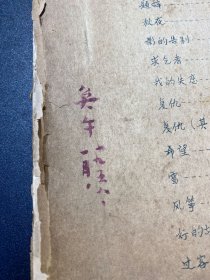 题辞
秋夜
影的告别
求乞者
我的失恋
复仇
复仇（其
希望
雪
风筝
好的故
过客